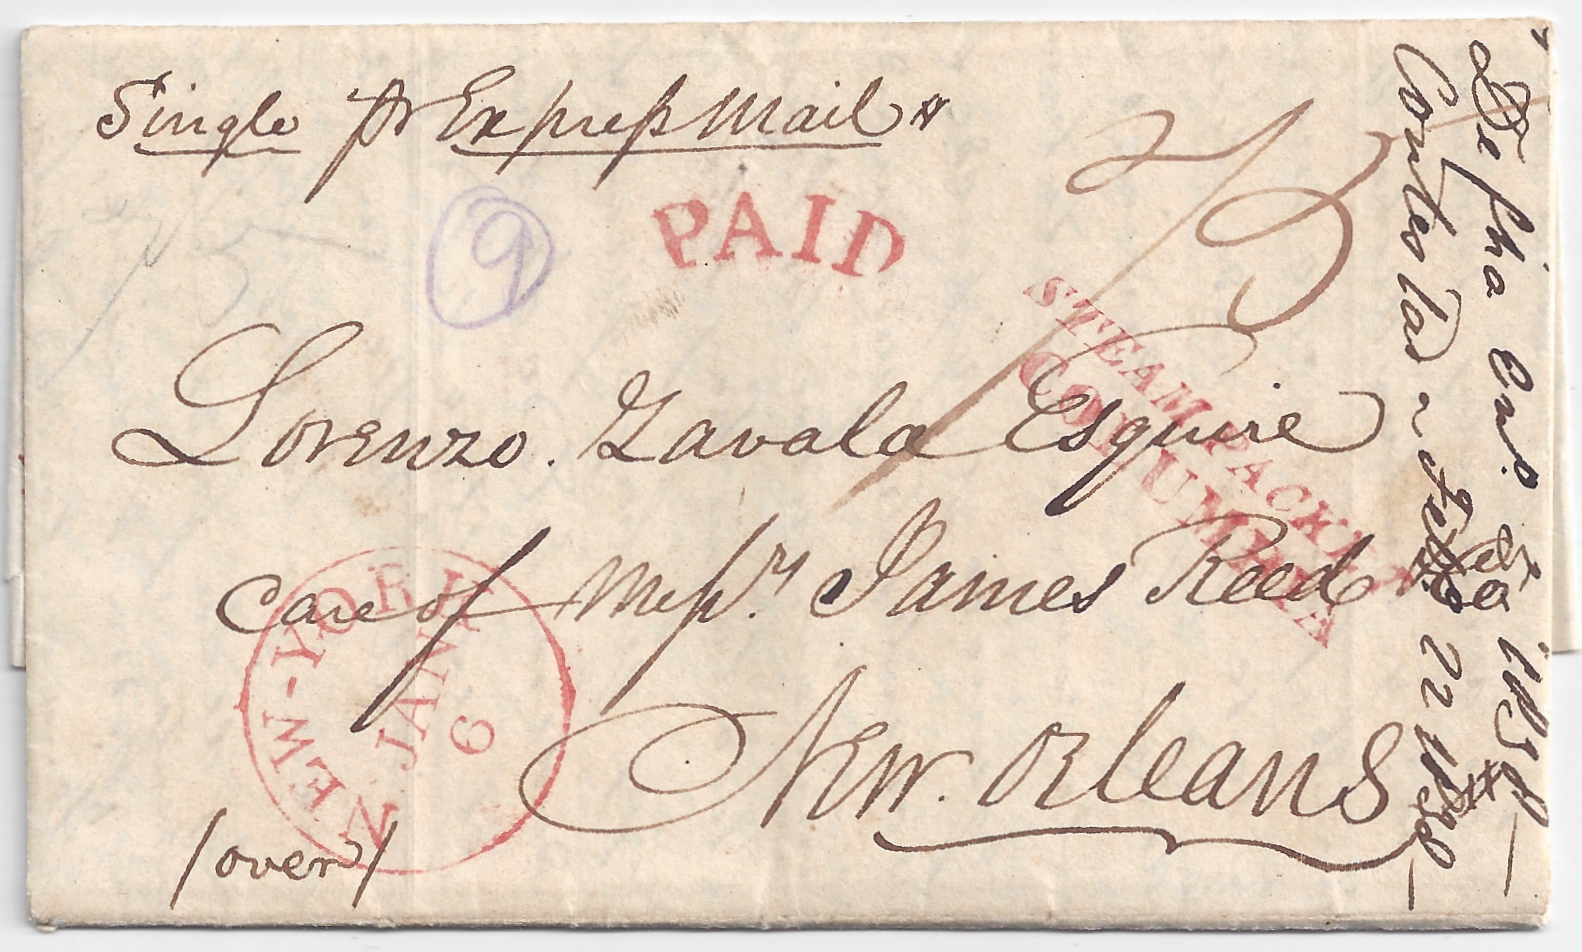 Single pr Express Mail
PAID
9
2/3
STEAM PACKET
COLUMBIA
Lorenzo. Zavala Esquire
Care of Messrs. James Reed & Co
New. Orleans
NEW-YORK
JANY
6
/over/
Philpha Eno. 5 1838
Contestada Febo 22 1838